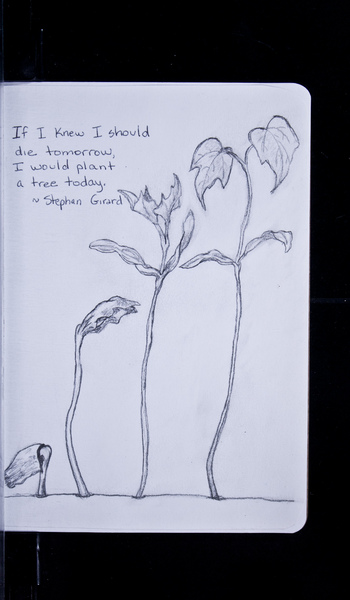 If I knew I should
die tomorrow,
I would plant
a tree today.
~ Stephan Girard